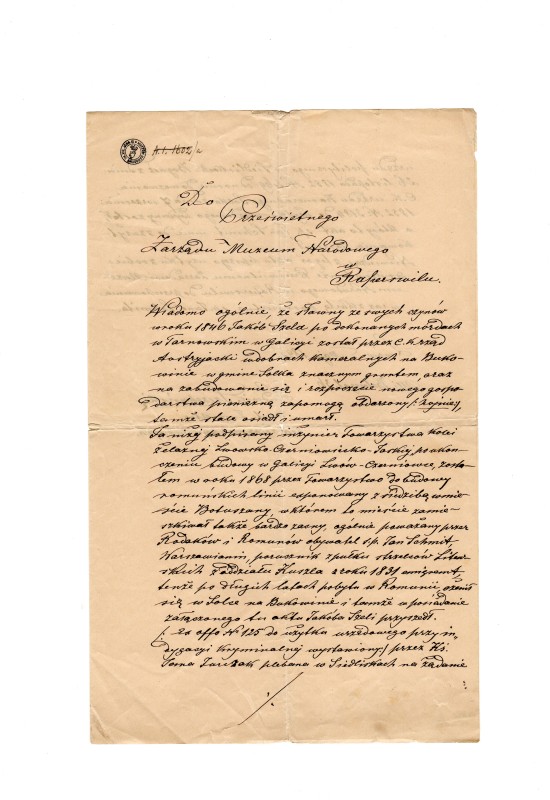 A.I. 1602/a
Do
Prześwietnego
Zarządu Muzeum Narodowego
w
Raperswilu.
Wiadomo ogólnie, że sławny ze swych czynów
w roku 1846 Jakób Szela po dokonanych mordach
w Tarnowskim w Galicyi został przez C. K. rząd
Austryjacki w dobrach kameralnych na Buko-
winie w gminie Solka znacznym gruntem oraz
na zabudowanie się i rozpoczęcie nowego gospo-
darstwa pieniężną zapomogą obdarzony
tamże stale osiadł i umarł.
Ja niżej podpisany inżynier Towarzystwa kolei
żelaznej Lwowsko-Czerniowiecko-Jasskiej po ukoń-
czeniu budowy w Galicyi Lwów-Czerniowce, zosta-
łem w roku 1868 przez Towarzystwo do budowy
rumuńskich linii exponowany z siedzibą w mie-
ście Botuszany, w którem to mieście zamie-
szkiwał także bardzo zacny, ogólnie poważany przez
Rodaków i Rumunów obywatel ś.p. Jan Schmit
Warszawianin, porucznik z pułku strzelców Litew-
skich z oddziału Kuszla z roku 1831 emigrant,
tenże po długich latach pobytu w Romunii, ożenił
się w Solce na Bukowinie i tamże w posiadanie
załączonego tu aktu Jakóba Szeli przyszedł.
/: ex offo № 125 do użytku urzędowego przy in-
dygacyi kryminalnej wystawiony/ przez Ks.
Jurczak plebana w Siedliskach na żądanie
./.